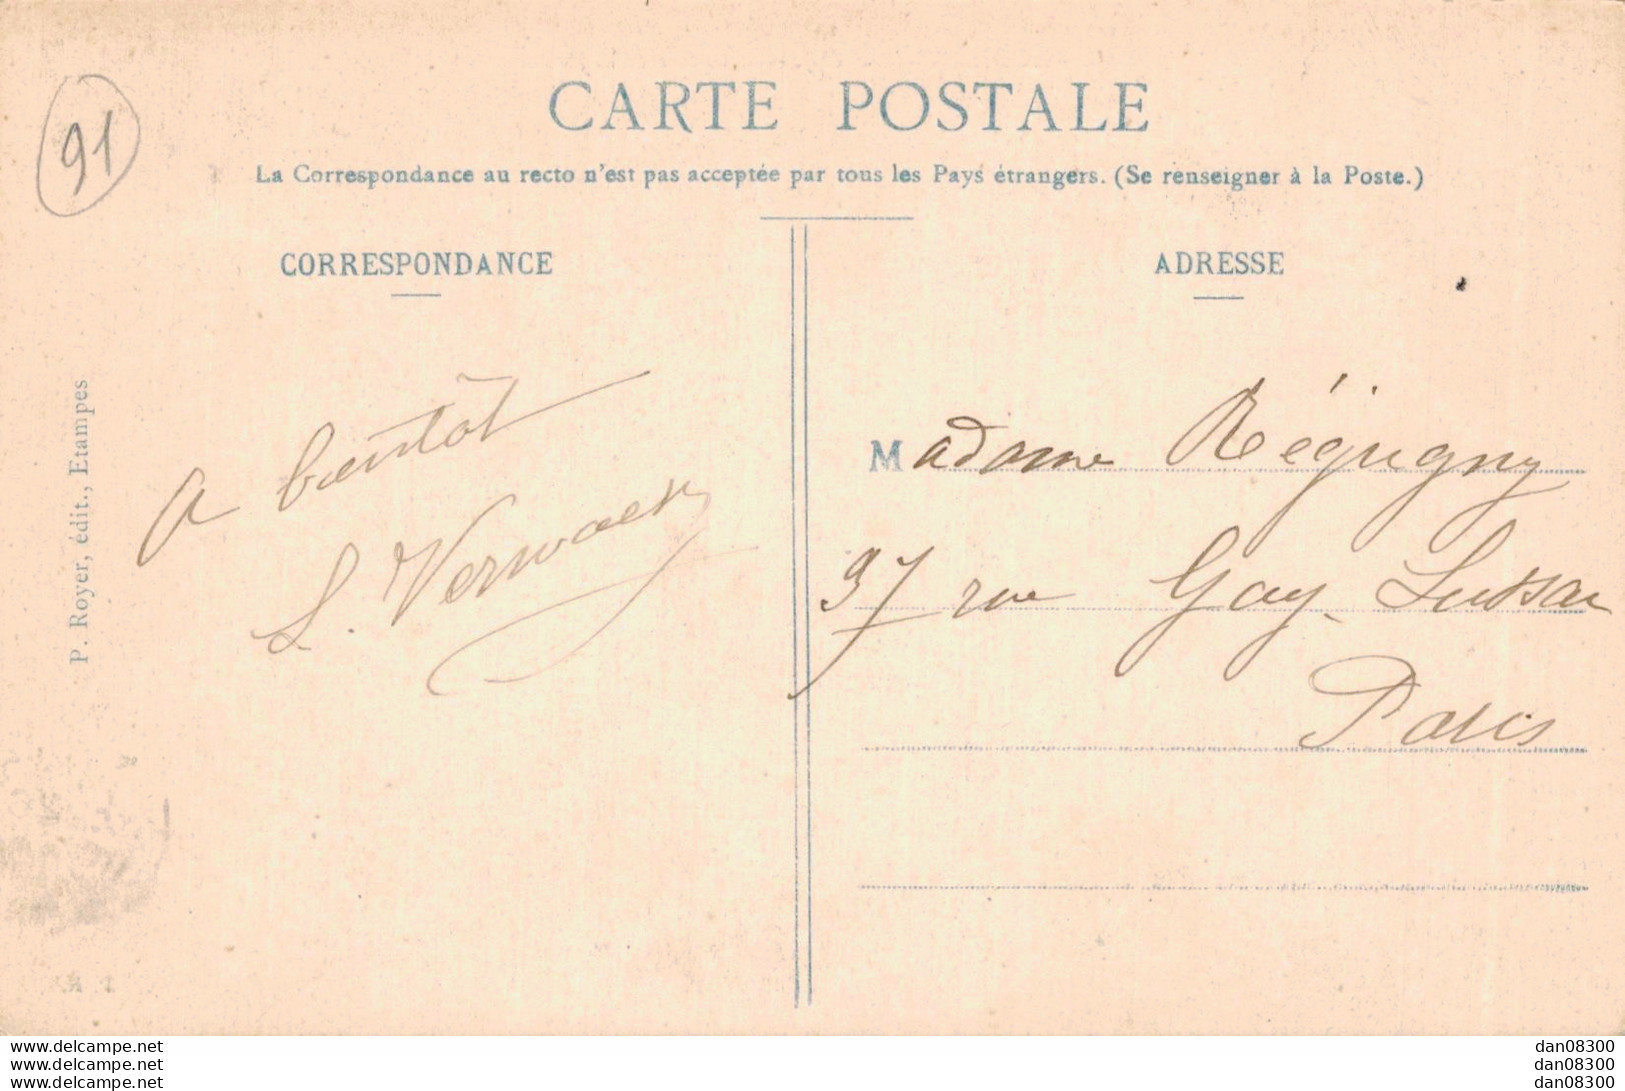 91
CARTE POSTALE
La Correspondance au recto n'est pas acceptée par tous les Pays étrangers. (Se renseigner à la Poste.)
CORRESPONDANCE
A bientôt
P. Royer, édit., Etampes
ADRESSE
Madame Régugny
37 rue Gay-Lussac
Paris
www.delcampe.net
www.delcampe.net
www.delcampe.net
dan08300
dan08300
dan08300